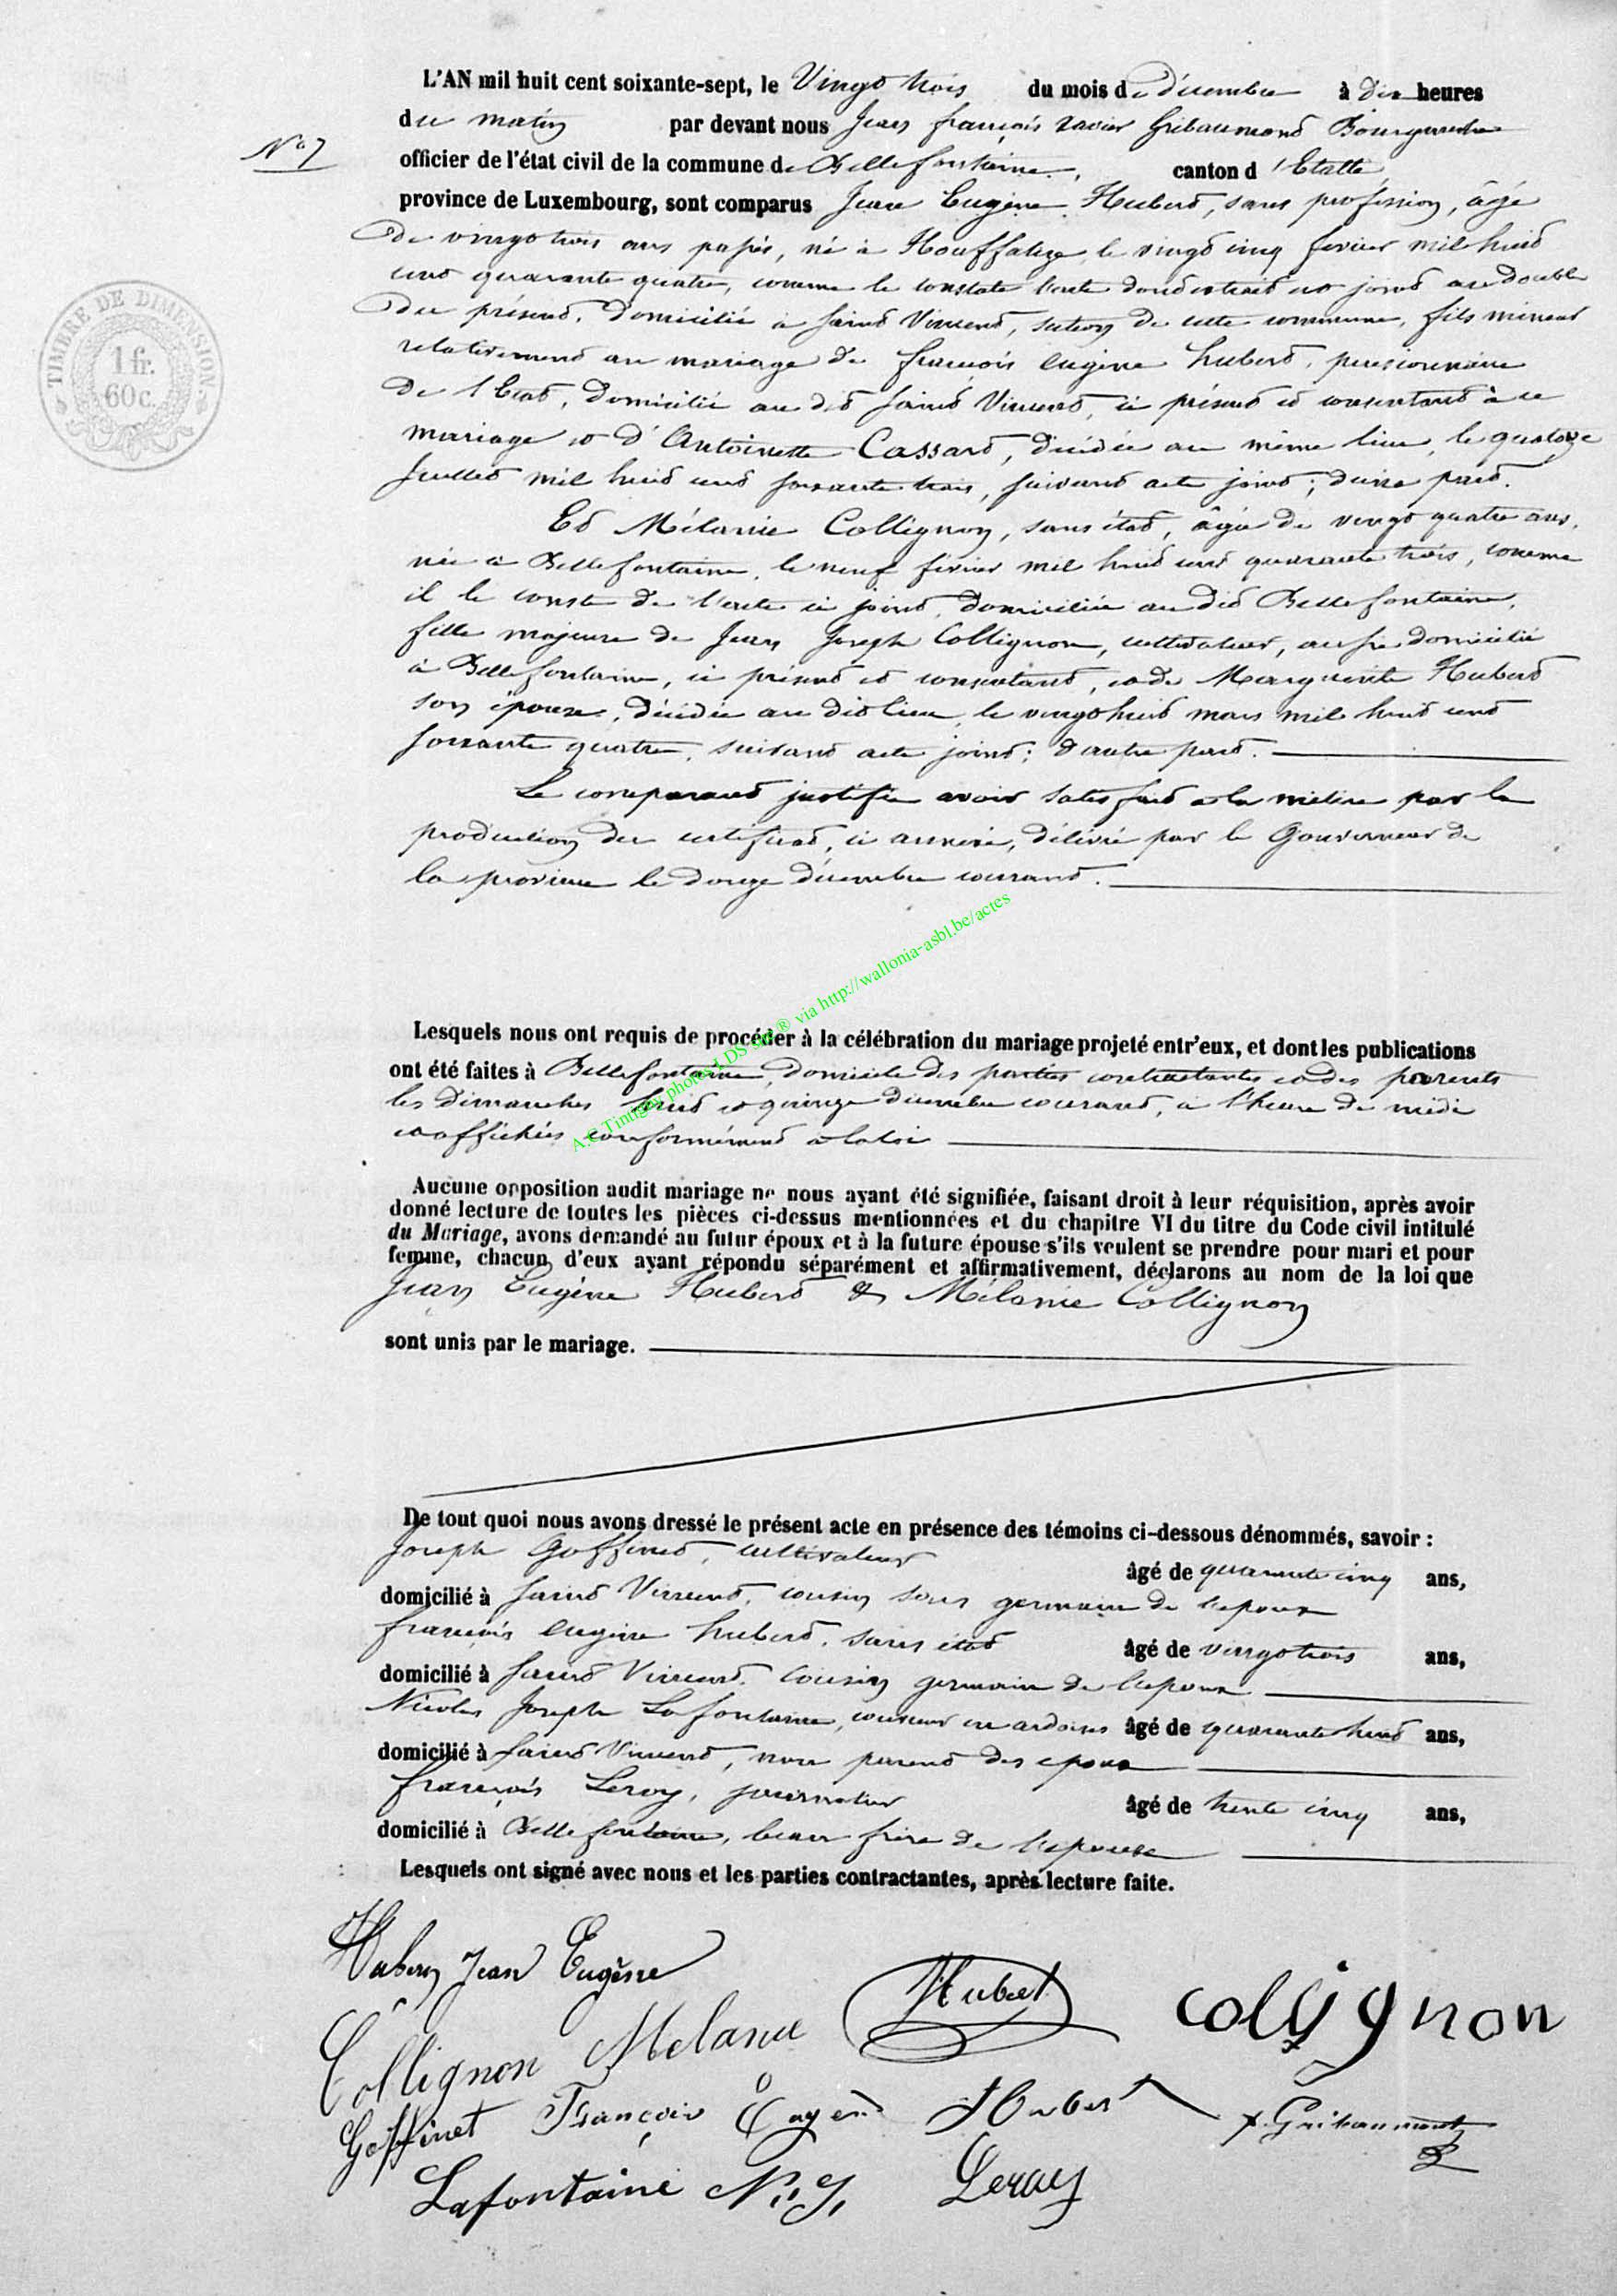 L'AN mil huit cent soixante-sept, le Vingt trois du mois de décembre à dix heures
du matin par devant nous Jean françois xavier Gribaumont Bourgmestre
N° 7
officier de l'état civil de la commune de Bellefontaine, canton d'Etalle
province de Luxembourg, sont comparus Jean Eugène Hubert, sans profession, âgé
de vingt trois ans passés, né à Houffalize le vingt cinq fevrier mil huit
cent quarante quatre, comme le constate l'acte dont extrait est joint au double
du présent, domicilié à Saint Vincent, section de cette commune, fils mineur
relativement au mariage de françois eugène hubert, pensionnaire
de l'Etat, domicilié au dit Saint Vincent, ci présent et consentant à ce
mariage et d'Antoinette Cassart, décédée au même lieu, le quatorze
Juillet mil huit cent soixante trois, suivant acte joint; d'une part.
Et Mélanie Collignon, sans état, âgée de vingt quatre ans,
née à Bellefontaine, le neuf février mil huit cent quarante trois, comme
il le conste de l'acte ci joint, domiciliée au dit Bellefontaine,
fille majeure de Jean Joseph Collignon, cultivateur, aussi domicilié
à Bellefontaine, ci présent et consentant, et de Marguerite Hubert
son épouse, décédée au dit lieu, le vingt huit mars mil huit cent
soixante quatre, suivant acte joint; d'autre part.
Le comparant justifie avoir satisfait à la milice par la
production du certificat, ci annexé, délivré par le Gouverneur de
la province le douze décembre courant.
TIMBRE DE DIMENSION
1 fr.
60 c.
A.C.Tintigny photos LDS via http://wallonia-asbl.be/actes
Lesquels nous ont requis de procéder à la célébration du mariage projeté entr'eux, et dont les publications
ont été faites à Bellefontaine, domicile des parties contractantes et des parents
les dimanches huit et quinze décembre courant, à l'heure de midi
et affichées conformément à la loi
Aucune opposition audit mariage ne nous ayant été signifiée, faisant droit à leur réquisition, après avoir
donné lecture de toutes les pièces ci-dessus mentionnées et du chapitre VI du titre du Code civil intitulé
du Mariage, avons demandé au futur époux et à la future épouse s'ils veulent se prendre pour mari et pour
femme, chacun d'eux ayant répondu séparément et affirmativement, déclarons au nom de la loi que
Jean Eugène Hubert & Mélanie Collignon
sont unis par le mariage.
De tout quoi nous avons dressé le présent acte en présence des témoins ci-dessous dénommés, savoir :
Joseph Goffinet, cultivateur âgé de quarante cinq ans,
domicilié à Saint Vincent, cousin sous germain de l'epoux
françois eugène hubert, sans état âgé de vingt trois ans,
domicilié à Saint Vincent, cousin germain de l'epoux
Nicolas Joseph Lafontaine, couvreur en ardoises âgé de quarante huit ans,
domicilié à Saint Vincent, non parent des epoux
françois Leroy, journalier âgé de trente cinq ans,
domicilié à Bellefontaine, beau frère de l'epouse
Lesquels ont signé avec nous et les parties contractantes, après lecture faite.
Hubert Jean Eugène
Hubert Collignon
Collignon Mélanie
Goffinet François Eugène Hubert x. Gribaumont
Lafontaine N. J. Leroy